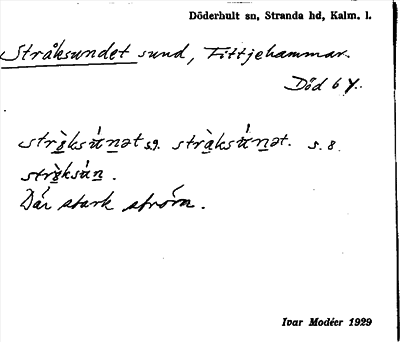 Döderhult sn, Stranda hd, Kalm. l.
Stråksundet sund, Fittjehammar.
Död 6 Y.
strà̱ksún̲ət s9. strà̱ksún̲ət. s. 8.
strà̱ksún̲.
Där stark ström.
Ivar Modéer 1929